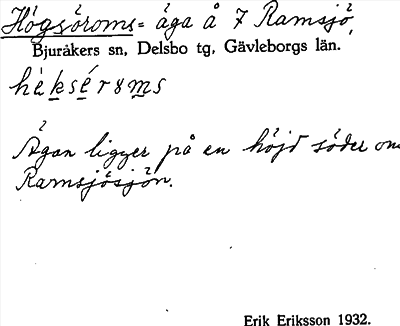 Högsöroms=åga å 7 Ramsjö,
Bjuråkers sn, Delsbo tg, Gävleborgs län.
hèksér𝼐ms
Ågan ligger på en höjd söder om
Ramsjösjön.
Erik Eriksson 1932.